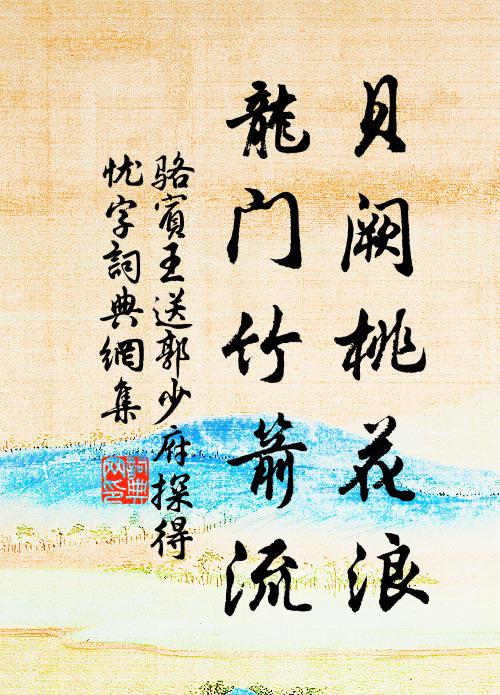 貝闕桃花浪
龍门竹箭流
骆賓王送郭少府探得
忧字詞典網集